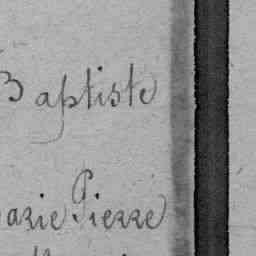 Baptiste
arie Pierre